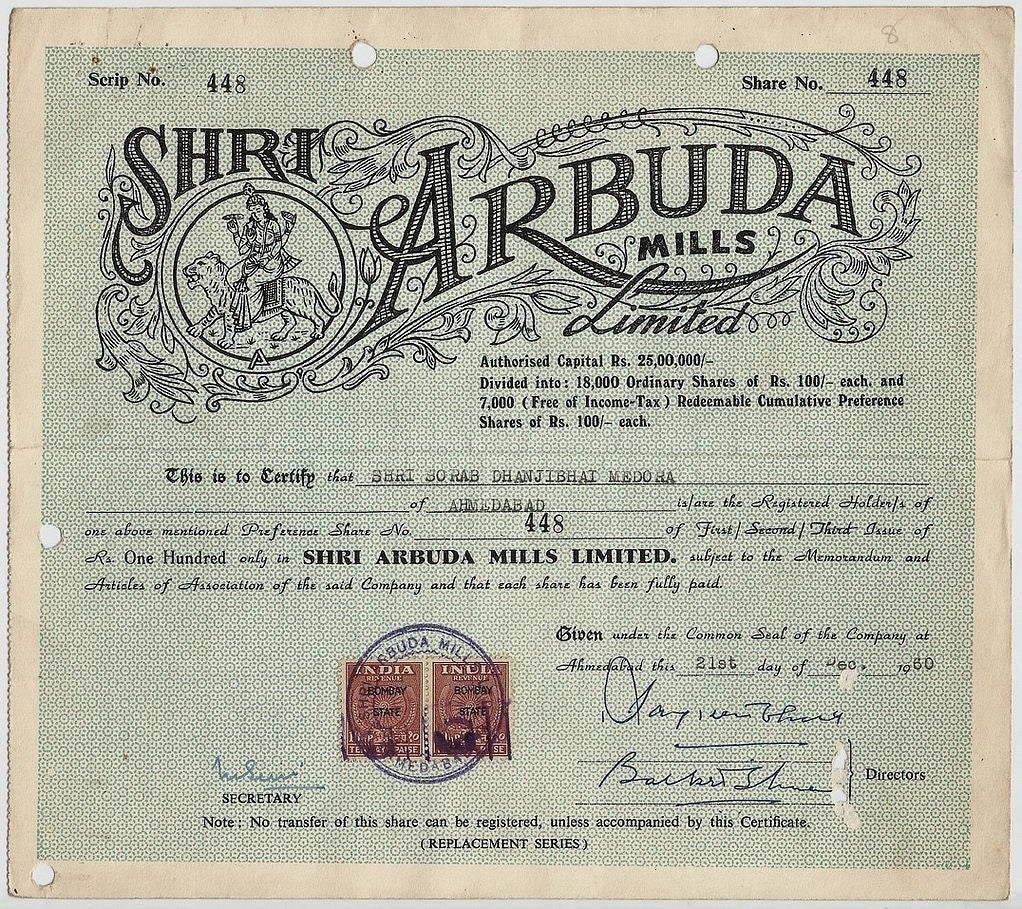 8
Scrip No. 448
Share No. 448
SHRI
ARBUDA
MILLS
Limited
A
Authorised Capital Rs. 25,00,000/-
Divided into: 18,000 Ordinary Shares of Rs. 100/- each. and
7,000 (Free of Income-Tax) Redeemable Cumulative Preference
Shares of Rs. 100/- each.
This is to Certify that SHRI SORAB DHANJIBHAI MEDORA
of AHMEDABAD is/are the Registered Holder/s of
one above mentioned Preference Share No. 448 of First/Second/Third Issue of
Rs. One Hundred only in SHRI ARBUDA MILLS LIMITED. subject to the Memorandum and
Articles of Association of the said Company and that each share has been fully paid.
Given under the Common Seal of the Company at
Ahmedabad this 21st day of Dec. 1960
ARBUDA MILL
AHMEDABA
INDIA INDIA
REVENUE REVENUE
BOMBAY BOMBAY
STATE STATE
PAISE PAISE
Directors
SECRETARY
Note: No transfer of this share can be registered, unless accompanied by this Certificate.
(REPLACEMENT SERIES)